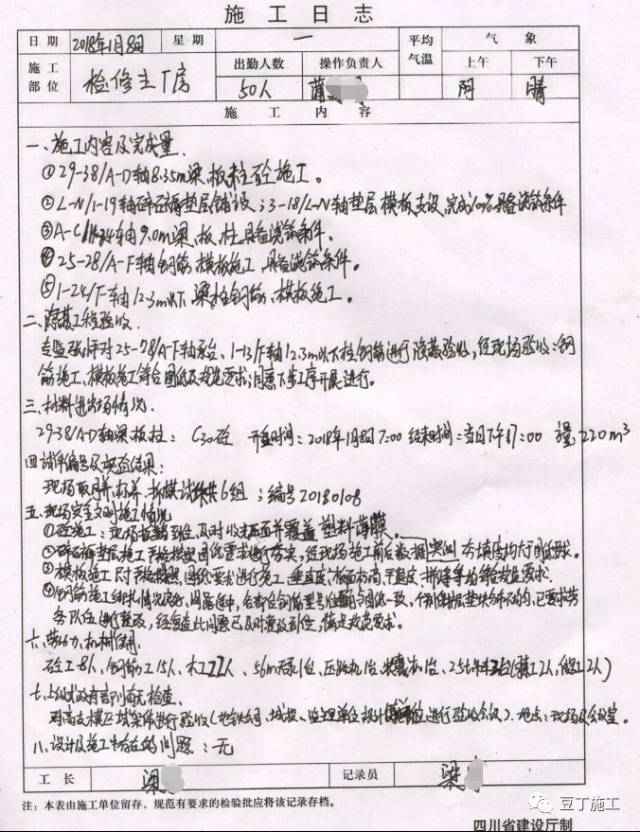 施 工 日 志
日 期 2018年1月8日 星 期 一 平均气温 气 象
施工部位 检修主厂房 出勤人数 操作负责人 上午 下午
50人 阴 晴
施 工 内 容
一、施工内容及完成量
①29-38/A-D轴8.35m梁、板、柱砼施工。
②L-N/1-19轴碎石褥垫层铺设;3-18/L-N轴垫层模板支设,完成100%具备浇筑条件
③A-C/轴9.0m梁、板、柱具备浇筑条件。
④25-28/A-F轴钢筋、模板施工,具备浇筑条件。
⑤1-24/F轴12.3m以下梁柱钢筋、模板施工。
二、隐蔽工程验收
对25-28/A-F轴承台、1-13/F轴12.3m以下柱钢筋进行隐蔽验收,经现场验收:钢
筋施工、模板施工符合图纸及规范要求;同意下步工序开展进行。
三、材料进出场情况
29-38/A-D轴梁板柱:C30砼 开始时间:2018年1月8日7:00 结束时间:当日下午17:00 量220m³
四、试件编号及试验结果:
现场取样、标养、拆模试块共6组;编号20180108
五、现场安全文明施工情况
①砼施工:现场到位,及时收面并覆盖塑料薄膜。
②碎石褥垫层施工严格按照图纸要求进行落实,经现场施工前后数据实测
③模板施工尺寸严格按照图纸要求进行施工,垂直度、标高、平整度、拼缝等均符合规范要求。
④钢筋施工绑扎情况良好,间距适中,与图纸一致,个别垫块分布不均,已要求劳
务队伍进行整改,经复查此问题已及时整改到位,满足规范要求。
六、劳动力、机械使用
砼工8人、钢筋工15人、木工22人、56m天泵1台、压路机1台、1台、25t
七、上级或政府部门有无检查
对高支模区域实体进行验收
八、设计及施工中存在的问题:无
工 长 梁 记录员 梁
注:本表由施工单位留存,规范有要求的检验批应将该记录存档。
四川省建设厅制
豆丁施工